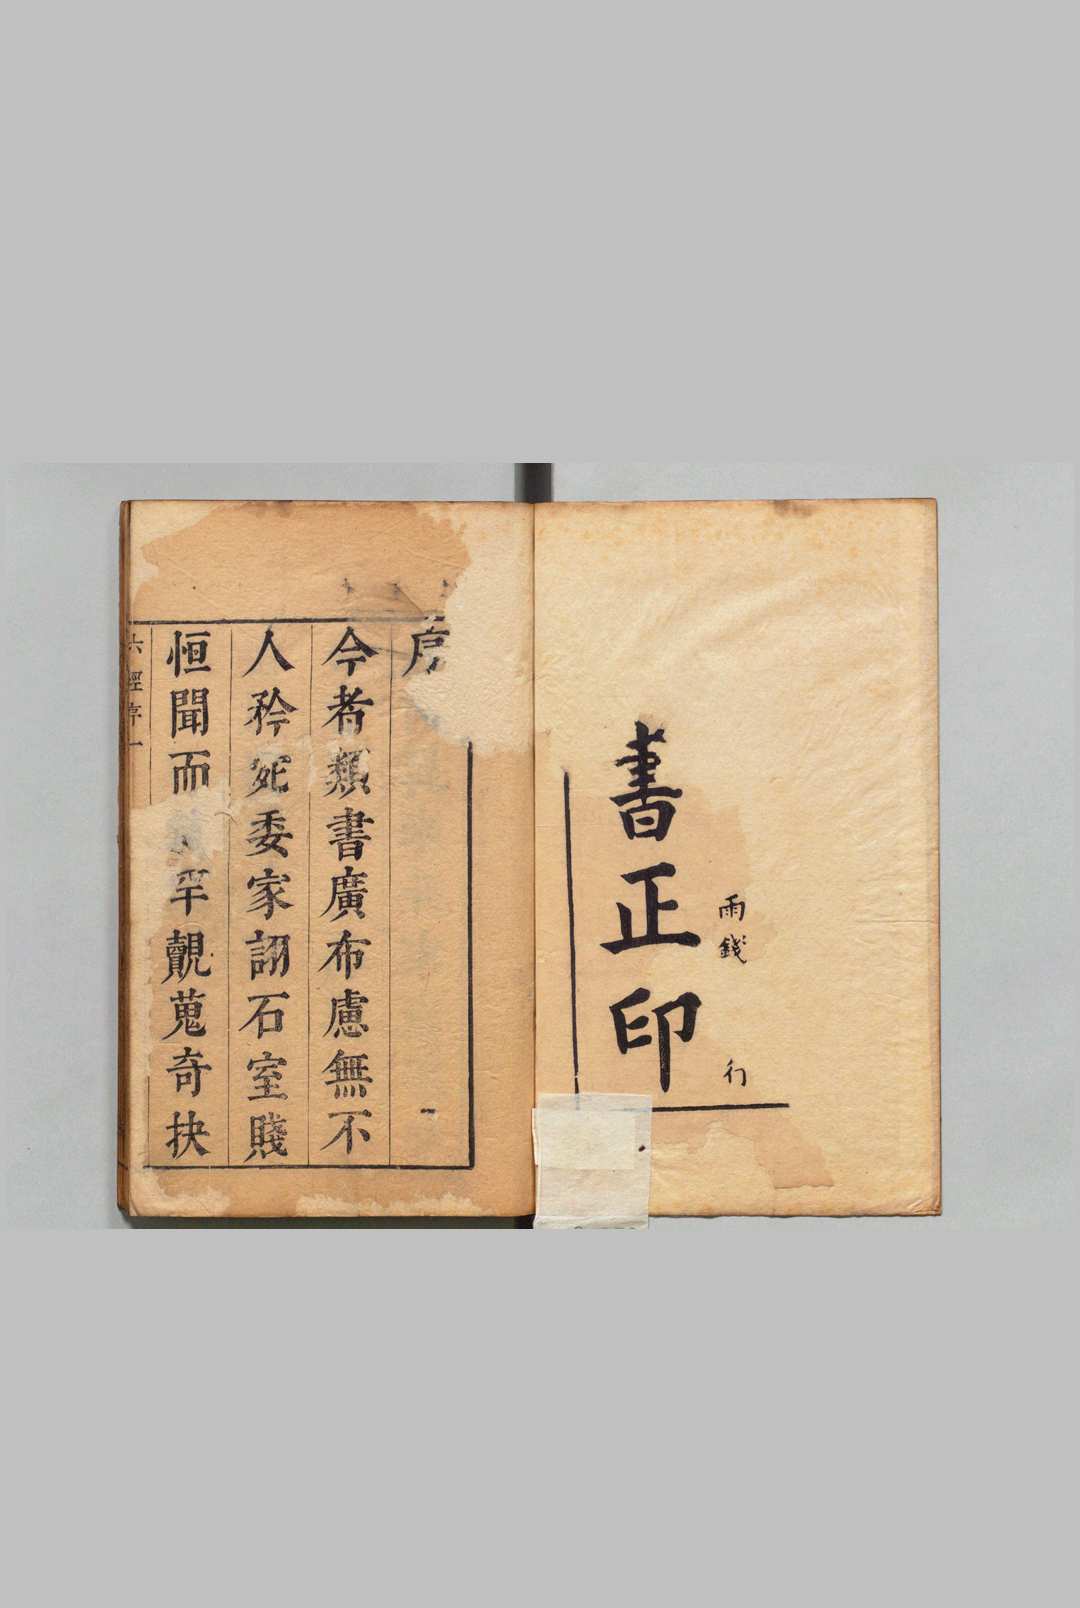 書正印
兩錢
行
序
今者類書廣布慮無不
人矜宛委家詡石室賤
恒聞而罕覿蒐奇抉
六經序一